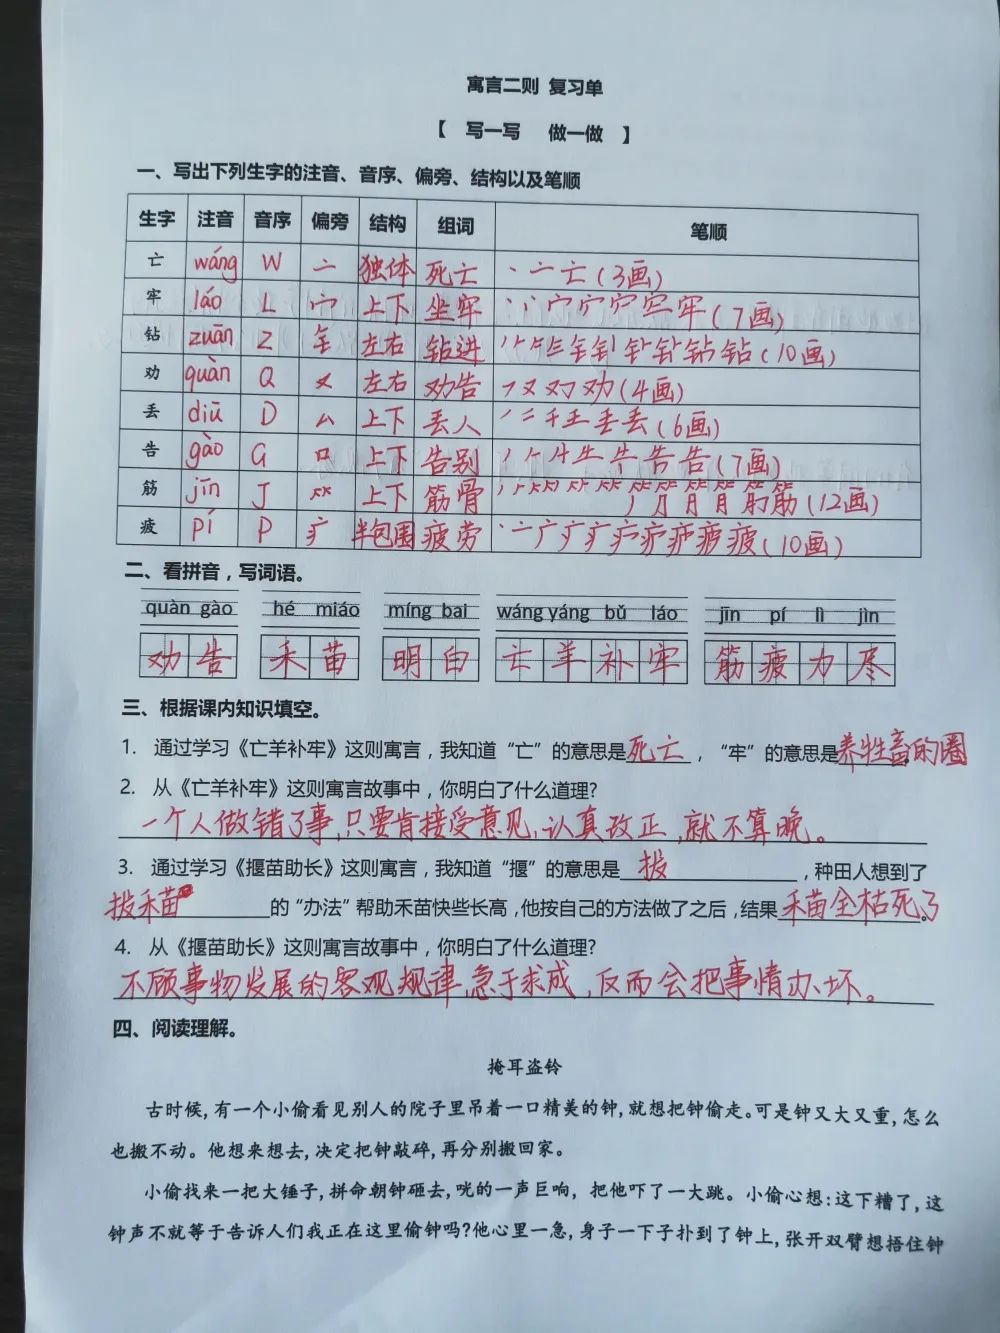 寓言二则 复习单
【 写一写 做一做 】
一、写出下列生字的注音、音序、偏旁、结构以及笔顺
生字 注音 音序 偏旁 结构 组词 笔顺
亡 wáng W 亠 独体 死亡 丶亠亡(3画)
牢 láo L 宀 上下 坐牢 (7画)
钻 zuān Z 钅 左右 钻进 (10画)
劝 quàn Q 又 左右 劝告 フ又叉劝(4画)
丢 diū D 厶 上下 丢人 (6画)
告 gào G 口 上下 告别 (7画)
筋 jīn J ⺮ 上下 筋骨 (12画)
疲 pí P 疒 半包围 疲劳 (10画)
二、看拼音，写词语。
quàn gào hé miáo míng bai wáng yáng bǔ láo jīn pí lì jìn
劝告 禾苗 明白 亡羊补牢 筋疲力尽
三、根据课内知识填空。
1. 通过学习《亡羊补牢》这则寓言，我知道“亡”的意思是死亡，“牢”的意思是养牲畜的圈
2. 从《亡羊补牢》这则寓言故事中，你明白了什么道理?
一个人做错了事,只要肯接受意见,认真改正,就不算晚。
3. 通过学习《揠苗助长》这则寓言，我知道“揠”的意思是 拔 ，种田人想到了
拔禾苗 的“办法”帮助禾苗快些长高，他按自己的方法做了之后，结果禾苗全枯死了。
4. 从《揠苗助长》这则寓言故事中，你明白了什么道理?
不顾事物发展的客观规律,急于求成,反而会把事情办坏。
四、阅读理解。
掩耳盗铃
古时候,有一个小偷看见别人的院子里吊着一口精美的钟,就想把钟偷走。可是钟又大又重,怎么
也搬不动。他想来想去,决定把钟敲碎,再分别搬回家。
小偷找来一把大锤子,拼命朝钟砸去,咣的一声巨响，把他吓了一大跳。小偷心想:这下糟了,这
钟声不就等于告诉人们我正在这里偷钟吗?他心里一急,身子一下子扑到了钟上,张开双臂想捂住钟